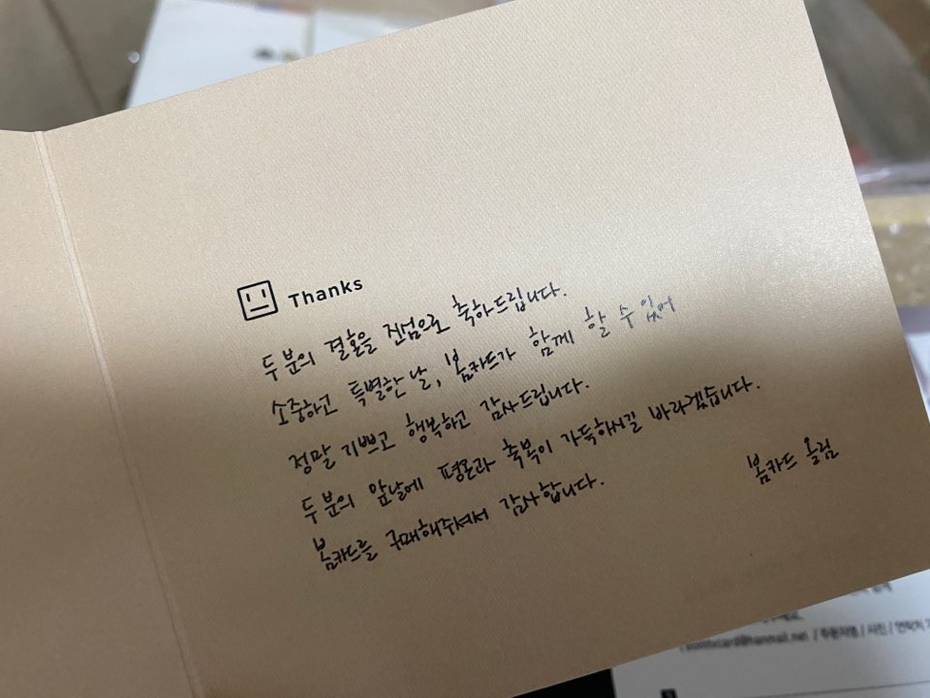 Thanks
두 분의 결혼을 진심으로 축하드립니다.
소중하고 특별한 날, 봄카드가 함께 할 수 있어
정말 기쁘고 행복하고 감사드립니다.
두 분의 앞날에 평온과 축복이 가득하시길 바라겠습니다.
봄카드를 구매해주셔서 감사합니다.
봄카드 올림
@hanmail.net / 주문자명 / 사진 / 연락처